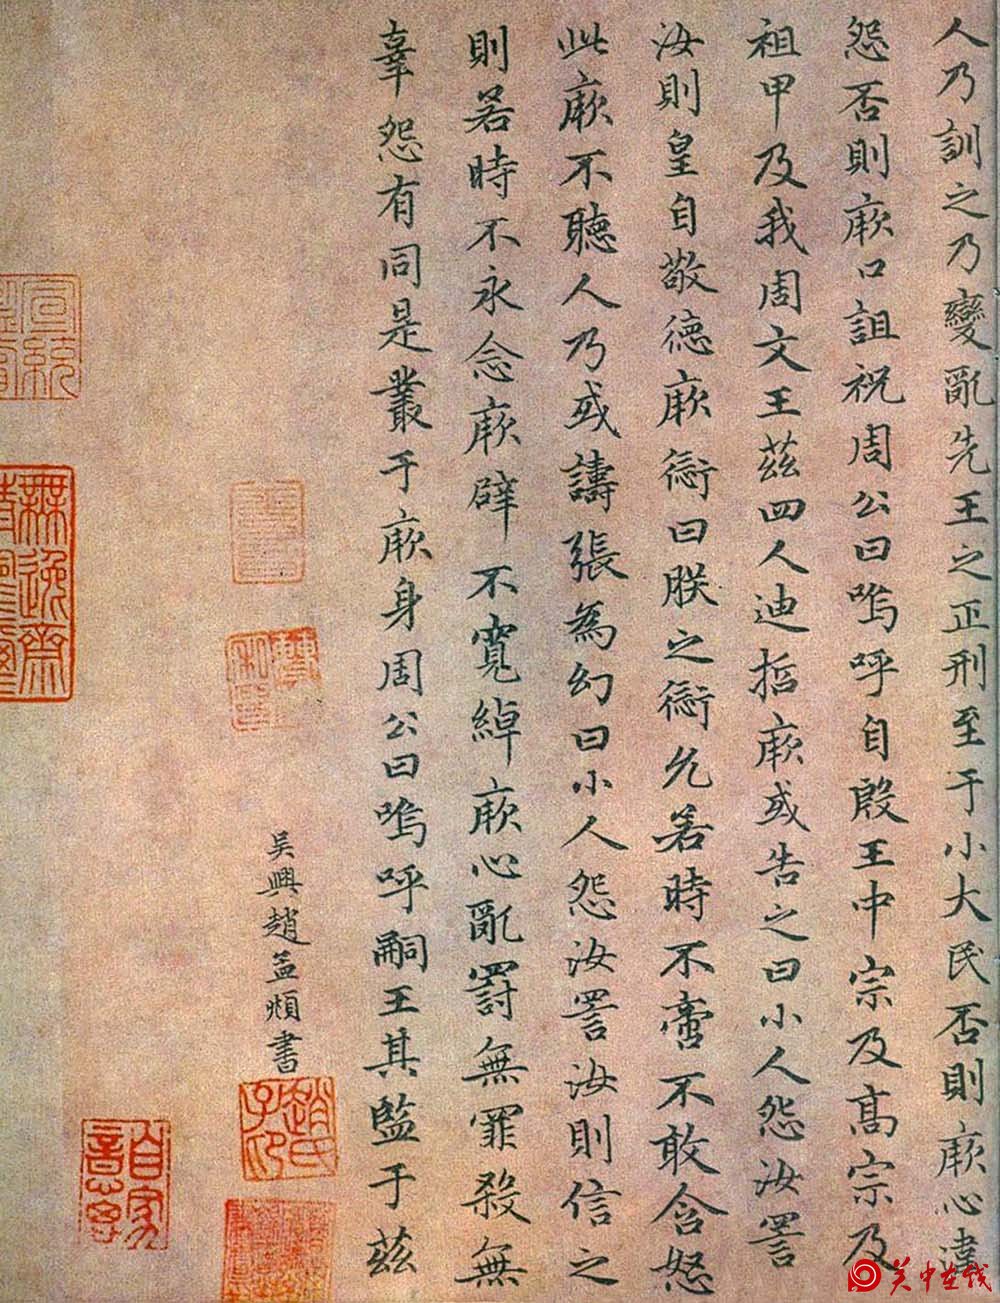 人乃訓之乃變亂先王之正刑至于小大民否則厥心違
怨否則厥口詛祝周公曰嗚呼自殷王中宗及高宗及
祖甲及我周文王茲四人迪哲厥或告之曰小人怨汝詈
汝則皇自敬德厥愆曰朕之愆允若時不啻不敢含怒
此厥不聽人乃或譸張為幻曰小人怨汝詈汝則信之
則若時不永念厥辟不寬綽厥心亂罰無罪殺無
辜怨有同是叢于厥身周公曰嗚呼嗣王其監于茲
吳興趙孟頫書
趙氏
無逸齋
宣統
关中在线